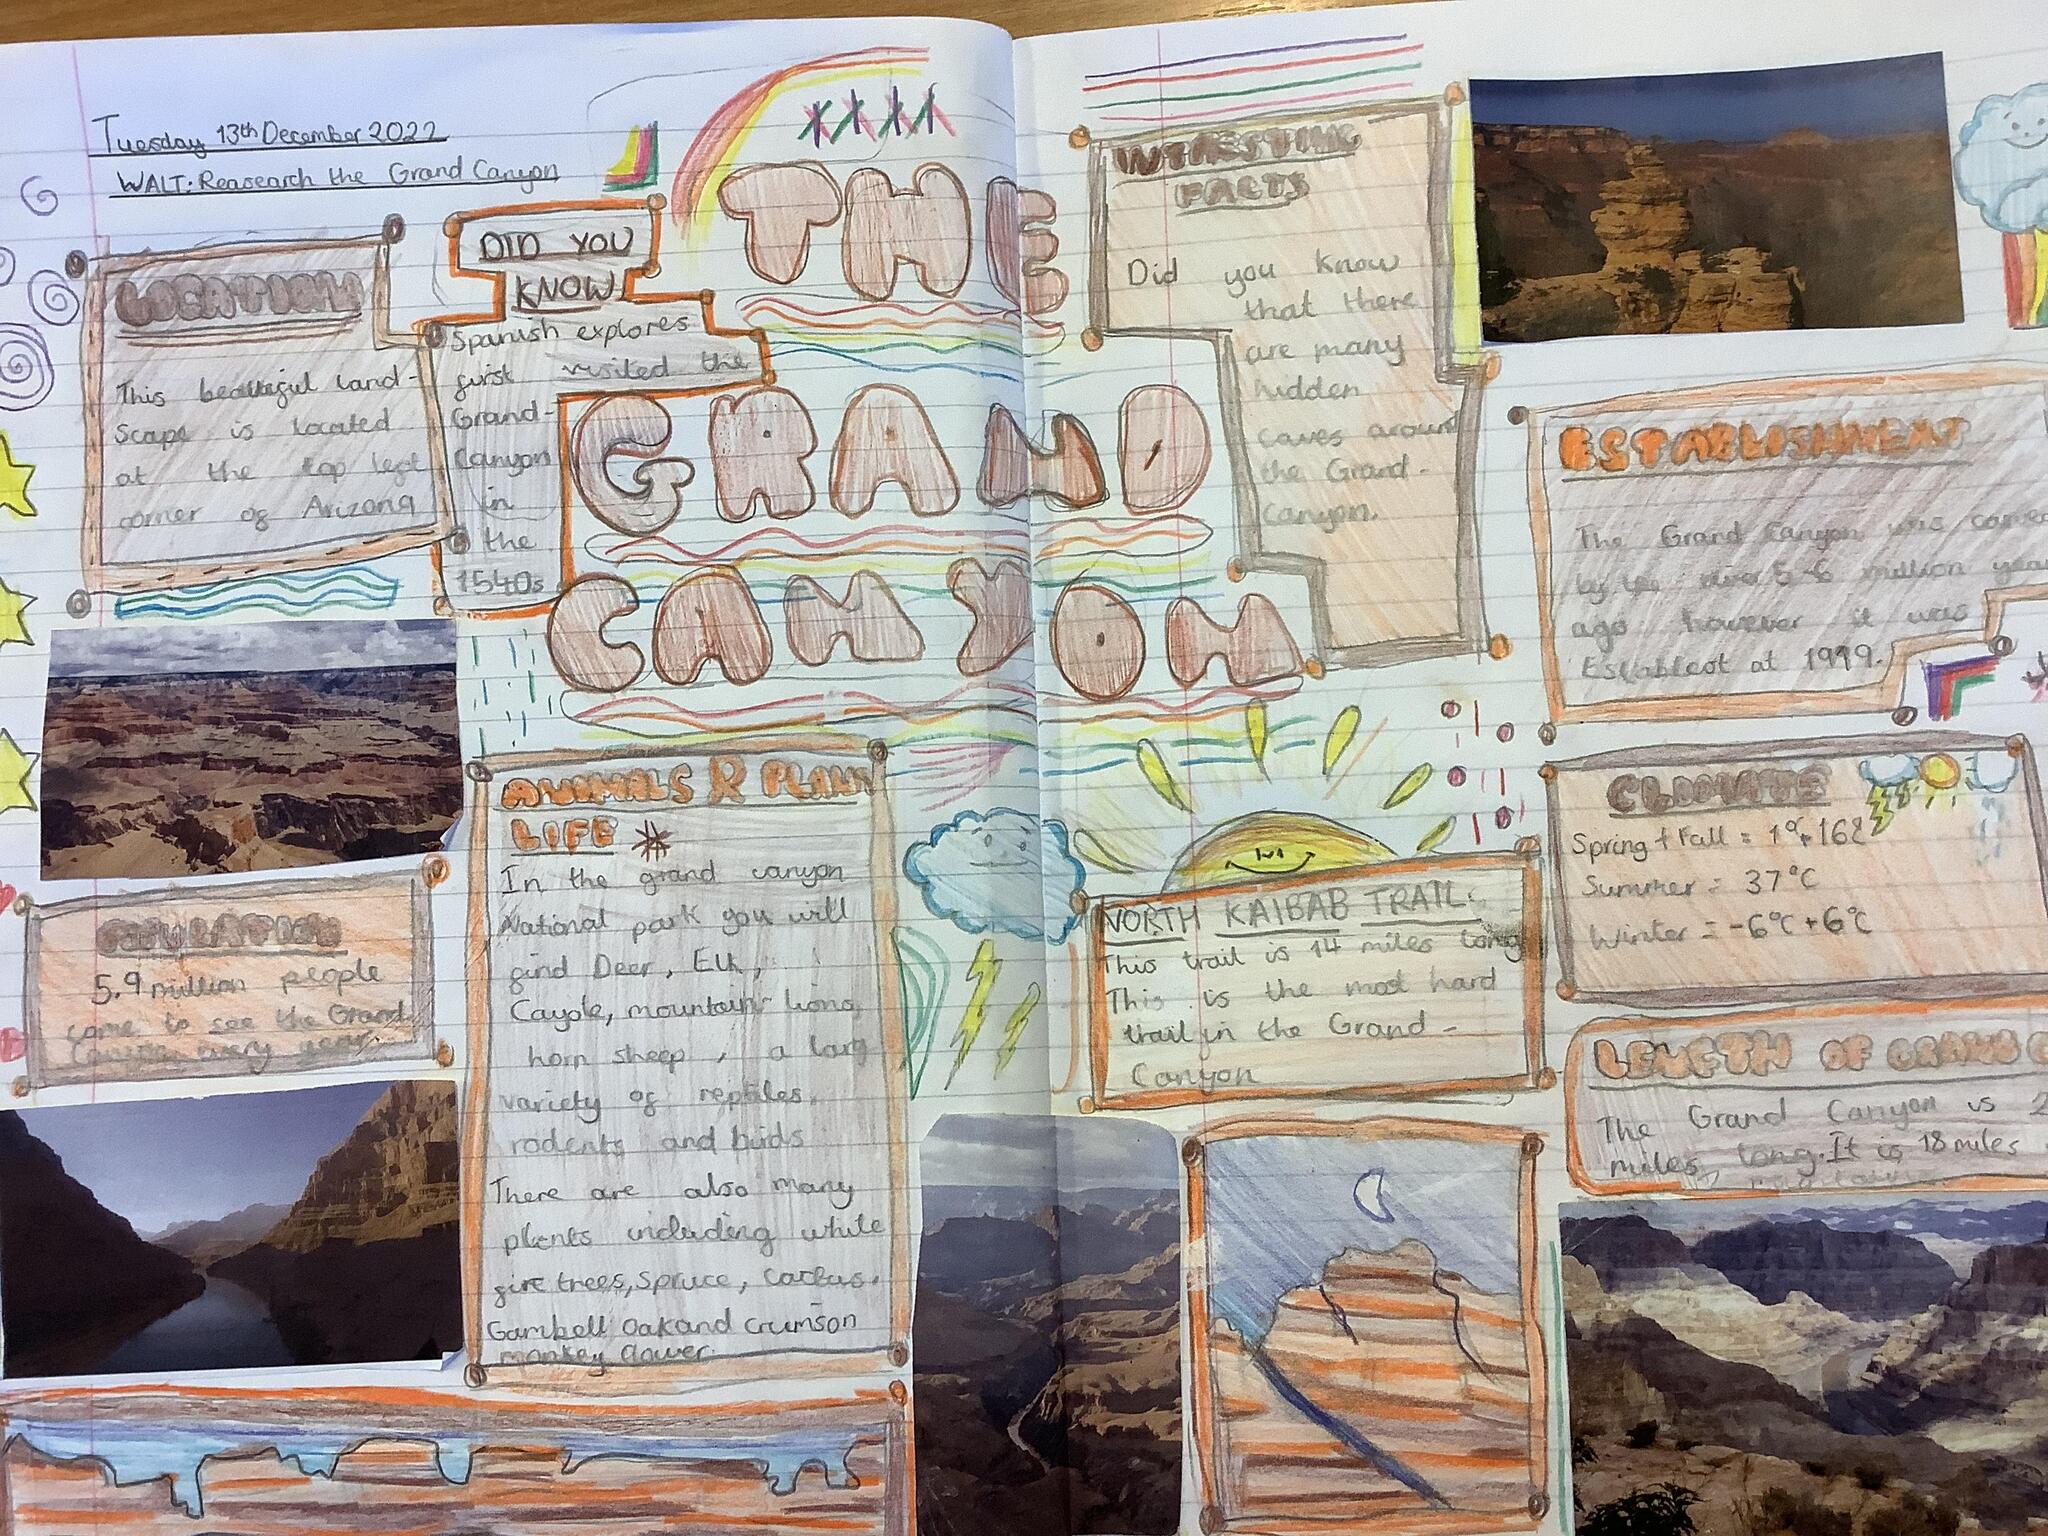 Tuesday 13th December 2022
WALT: Reasearch the Grand Canyon
THE
GRAND
CANYON
LOCATION
This beautiful land-
scape is located
at the top left
corner of Arizona
DID YOU
KNOW
Spanish explores
first visited the
Grand-
Canyon
in
the
1540s
INTRESTING
FACTS
Did you know
that there
are many
hidden
caves around
the Grand-
Canyon.
ESTABLISHMENT
The Grand Canyon was
by the river 5-6 million
ago however it was
Establest at 1919.
ANIMALS & PLANT
LIFE
In the grand canyon
National park you will
find Deer, Elk,
Cayote, mountain lions,
horn sheep, a larg
variety of reptiles,
rodents and birds
There are also many
plants including white
fire trees, Spruce, cactus,
Gambell oak and crimson
monkey flower.
5.9 million people
come to see the Grand
Canyon every year.
NORTH KAIBAB TRAIL:
This trail is 14 miles long
This is the most hard
trail in the Grand-
Canyon
CLIMATE
Spring + Fall =
Summer = 37°C
Winter = -6°C + 6°C
LENGTH OF GRAND
The Grand Canyon is
miles long. It is 18 miles